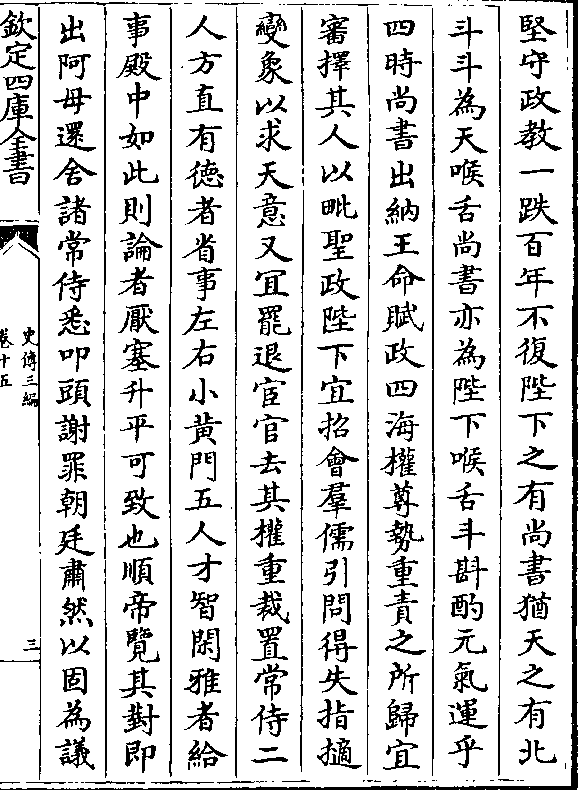 堅守政教一跌百年不復陛下之有尚書猶天之有北
斗斗為天喉舌尚書亦為陛下喉舌斗斟酌元氣運乎
四時尚書出納王命賦政四海權尊勢重責之所歸宜
審擇其人以毗聖政陛下宜招會羣儒引問得失指擿
變象以求天意又宜罷退宦官去其權重裁置常侍二
人方直有徳者省事左右小黄門五人才智閑雅者給
事殿中如此則論者厭塞升平可致也順帝覽其對即
出阿母還舍諸常侍悉叩頭謝罪朝廷肅然以固為議
欽定四庫全書
史傳三編
卷十五
三